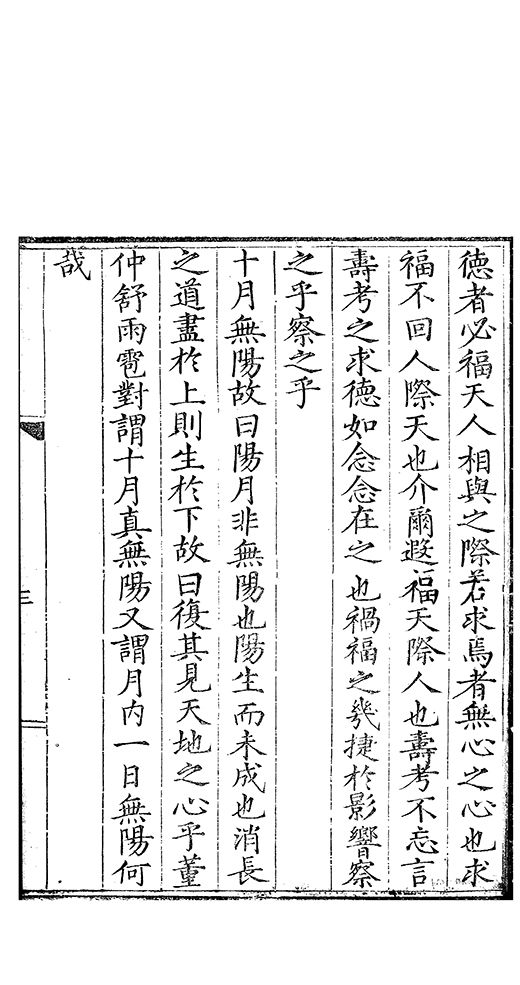 德者必福天人相與之際若求焉者無心之心也求
福不回人際天也介爾遐福天際人也壽考不忘言
壽考之求德如念念在之也禍福之幾捷於影響察
之乎察之乎
十月無陽故曰陽月非無陽也陽生而未成也消長
之道盡於上則生於下故曰復其見天地之心乎董
仲舒雨雹對謂十月真無陽又謂月内一日無陽何
哉
三